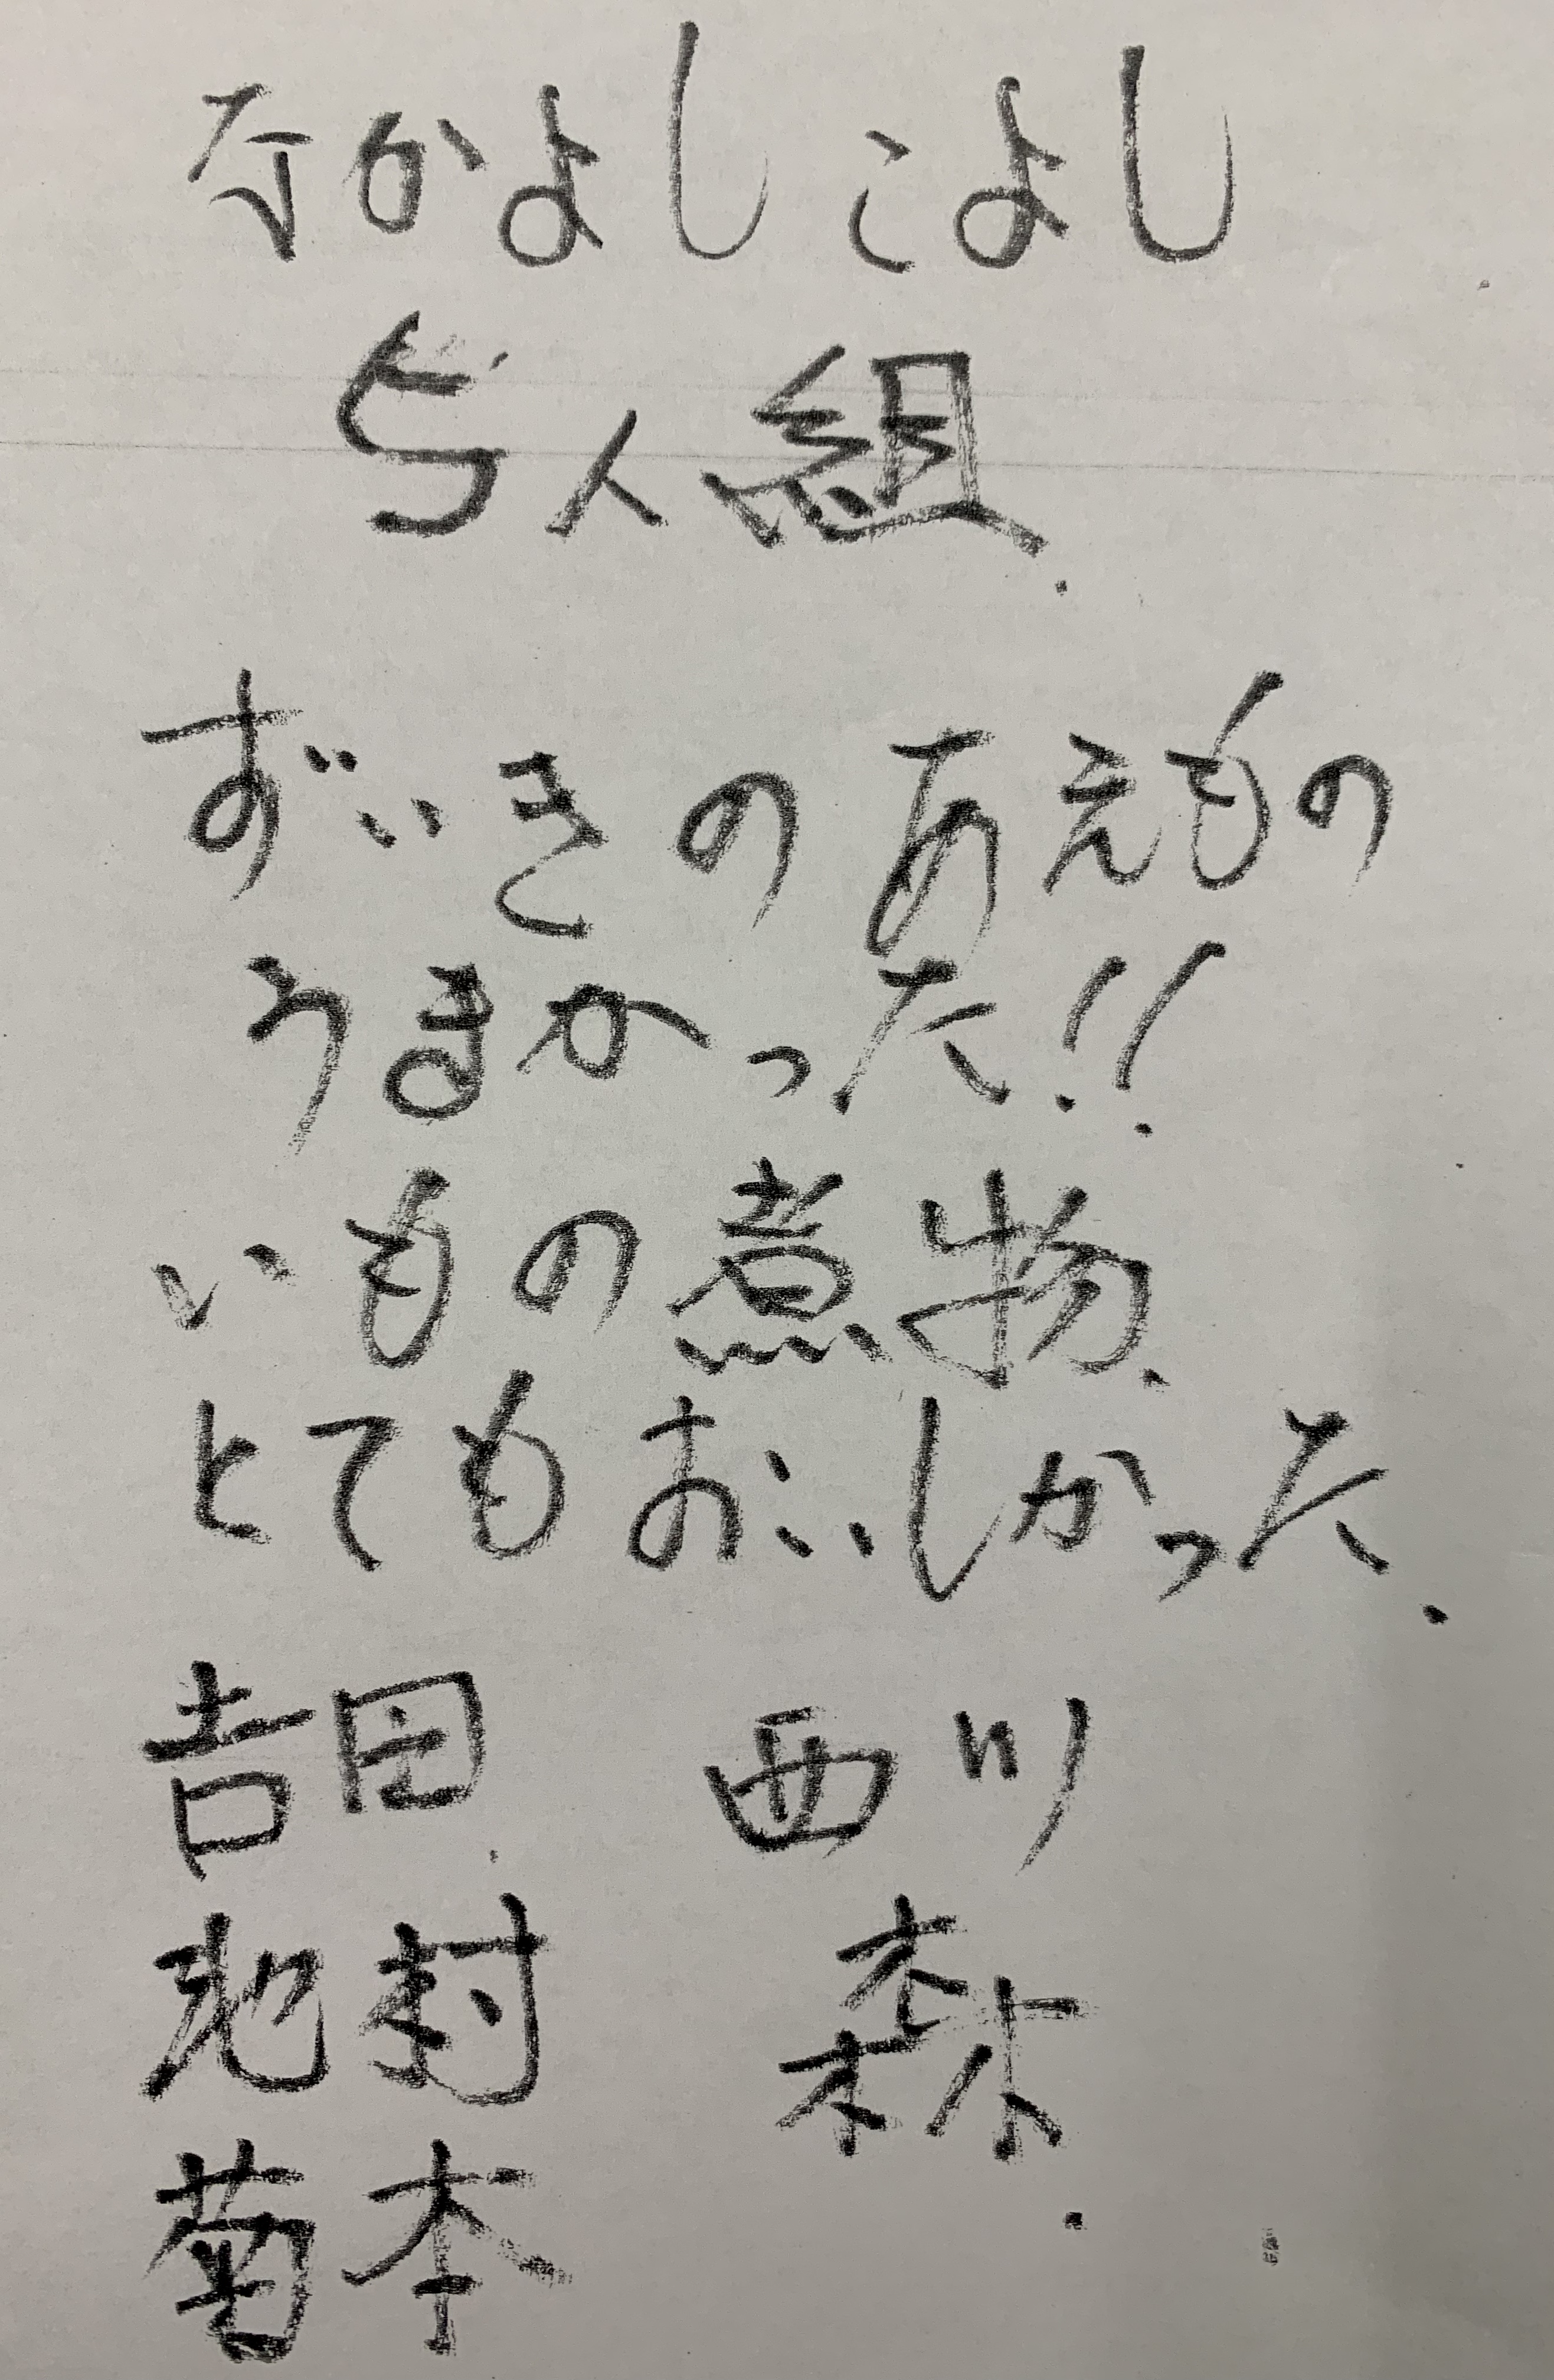 なかよしこよし
5人組
ずいきのあえもの
うまかった!!
いもの煮物
とてもおいしかった
吉田 西川
池村 森
菊本